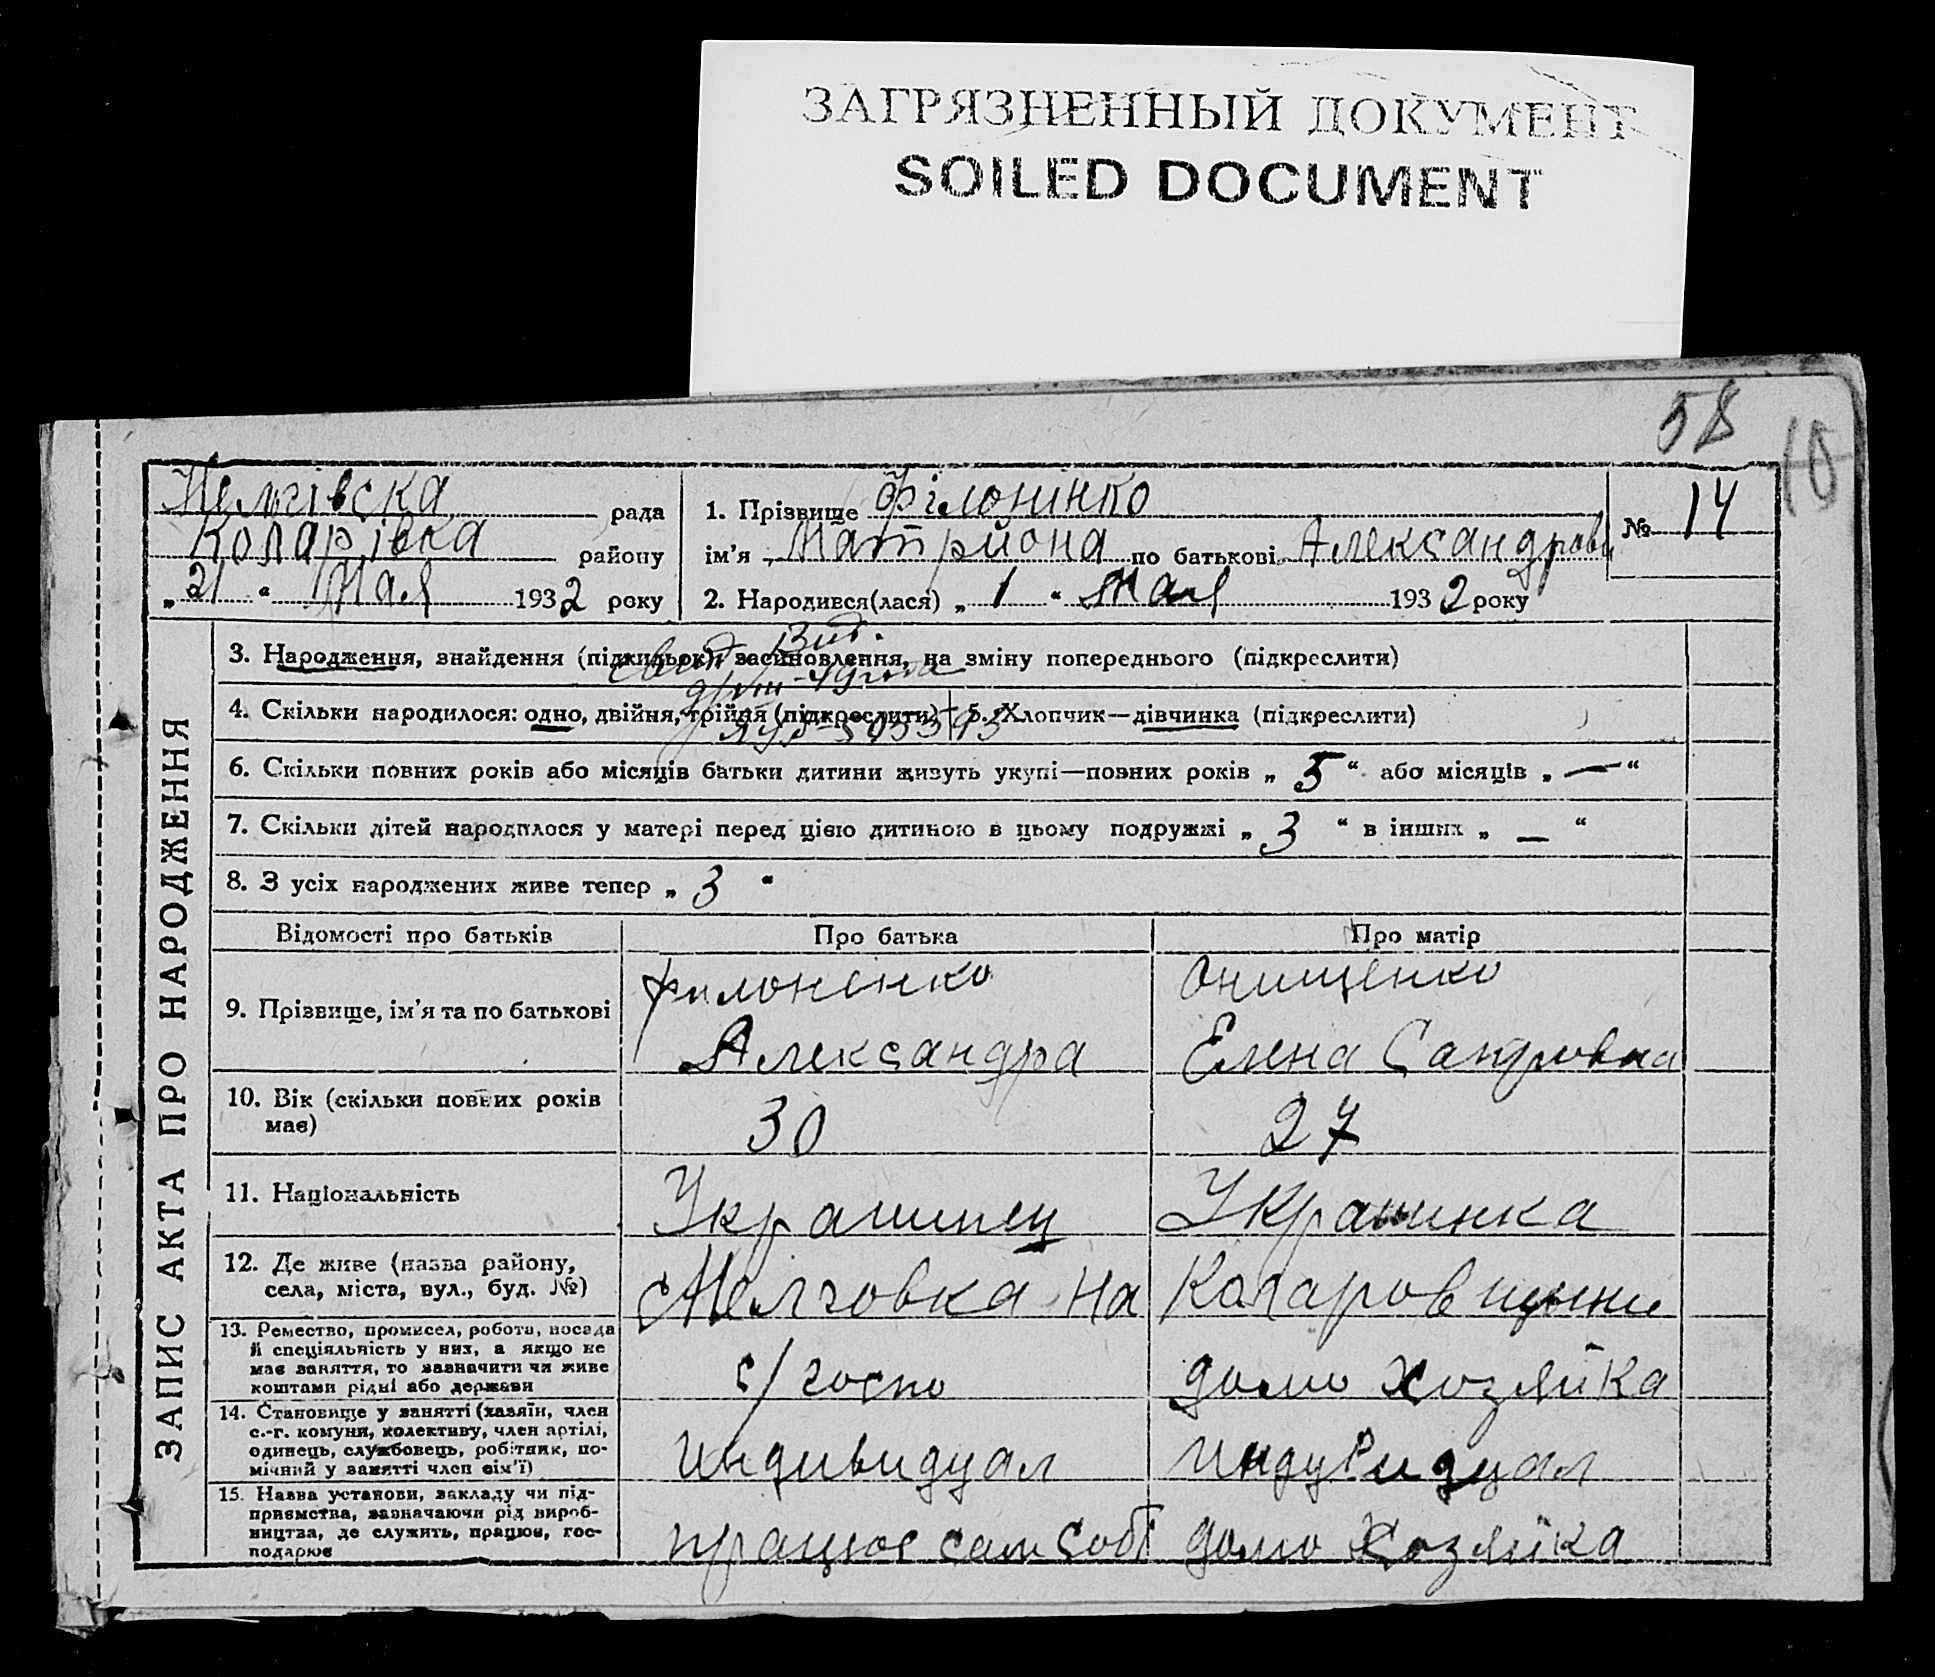 ЗАГРЯЗНЕННЫЙ ДОКУМЕНТ
SOILED DOCUMENT
58
10
рада
Коларівка району
„21“ Мая 1932 року
1. Прізвище Філонінко
ім'я Матрйона по батькові Александрови
2. Народився(лася) „1“ Мая 1932 року
№ 14
ЗАПИС АКТА ПРО НАРОДЖЕННЯ
Вид.
3. Народження, знайдення (підкидьок), засиновлення, на зміну попереднього (підкреслити)
4. Скільки народилося: одно, двійня, трійня (підкреслити) 5. Хлопчик—дівчинка (підкреслити)
6. Скільки повних років або місяців батьки дитини живуть укупі—повних років „5“ або місяців „—“
7. Скільки дітей народилося у матері перед цією дитиною в цьому подружжі „3“ в інших „—“
8. З усіх народжених живе тепер „3“
Відомості про батьків Про батька Про матір
9. Прізвище, ім'я та по батькові
Филоненко
Александра
Онищенко
Елена Сандровна
10. Вік (скільки повних років
має)
30
27
11. Національність
Украинец
Украинка
12. Де живе (назва району,
села, міста, вул., буд. №)
с Мелговка на Коларовщини
13. Ремество, промисел, робота, посада
й спеціяльність у них, а якщо не
має заняття, то зазначити чи живе
коштами рідні або держави
с/госпо
домо хозяйка
14. Становище у занятті (хазяїн, член
с.-г. комуни, колективу, член артілі,
одинець, службовець, робітник, по-
мічний у занятті член сім'ї)
индивидуал
индувидуал
15. Назва установи, закладу чи під-
приємства, зазначаючи рід вироб-
ництва, де служить, працює, гос-
подарює
працює сам собі
домо хозяйка